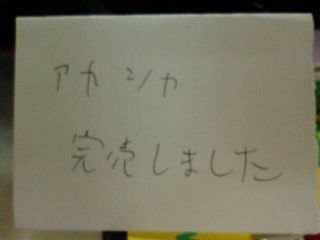 アカシカ
完売しました